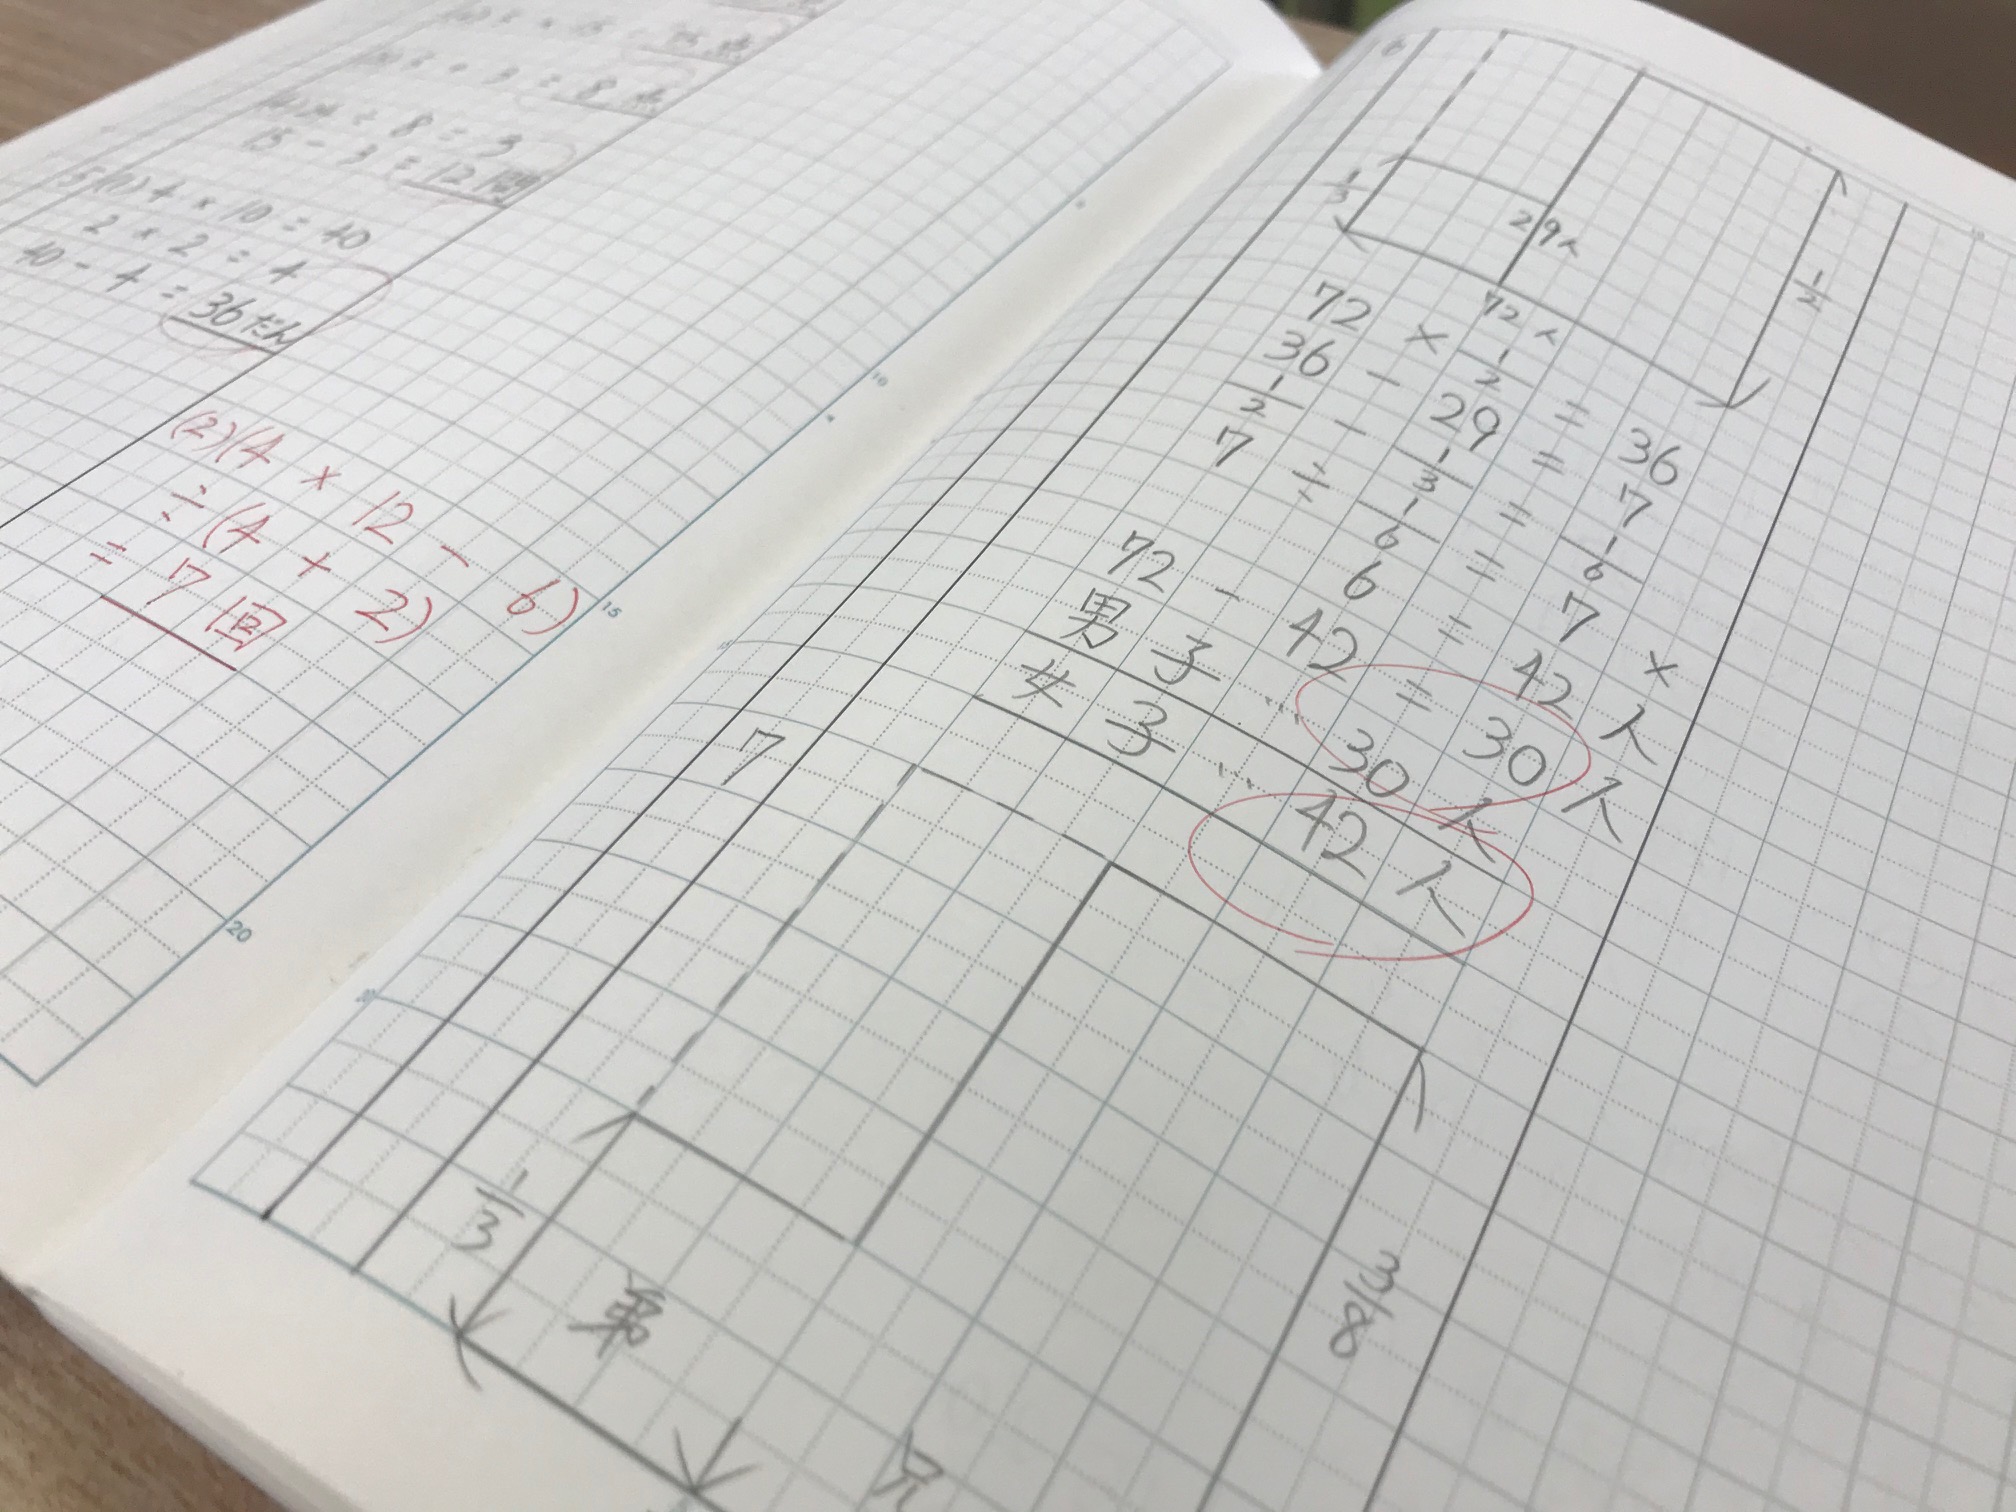 15 - 3 = 12問
5(1) 4 × 10 = 40
2 × 2 = 4
40 - 4 = 36だん
(2)(4 × 12 - 6)
÷(4 + 2)
= 7回
10
15
20
1/3
29人
72人
1/2
72 × 1/2 = 36
36 - 29 = 7
1/2 - 1/3 = 1/6
7 ÷ 1/6 = 7 ×
6 = 42人
72 - 42 = 30人
男子…30人
女子…42人
7
1/3
弟
3/8
兄